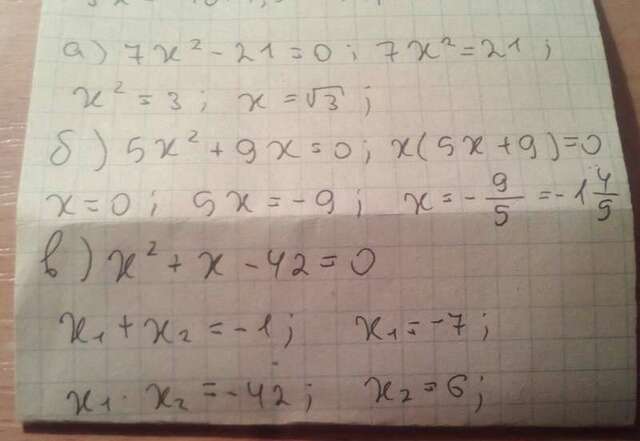 а) 7x² - 21 = 0; 7x² = 21;
x² = 3; x = √3;
б) 5x² + 9x = 0; x(5x + 9) = 0
x = 0; 5x = -9; x = -9/5 = -1 4/5
в) x² + x - 42 = 0
x₁ + x₂ = -1; x₁ = -7;
x₁ · x₂ = -42; x₂ = 6;